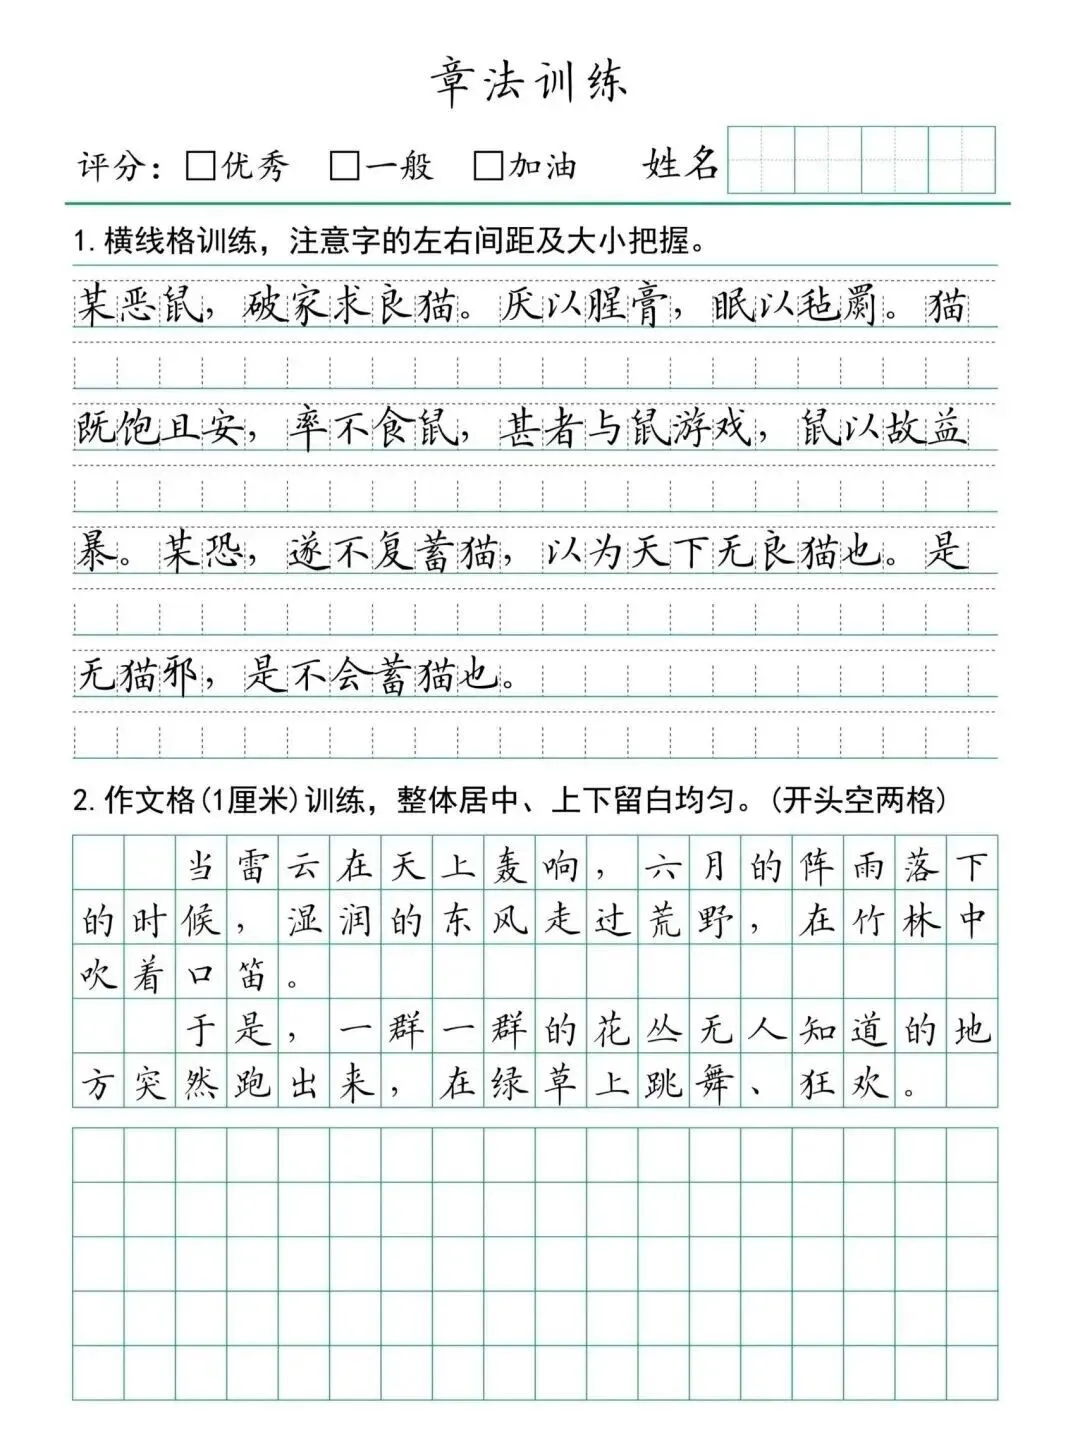 章法训练
评分：□优秀 □一般 □加油 姓名
1.横线格训练，注意字的左右间距及大小把握。
某恶鼠，破家求良猫。厌以腥膏，眠以毡罽。猫
既饱且安，率不食鼠，甚者与鼠游戏，鼠以故益
暴。某恐，遂不复蓄猫，以为天下无良猫也。是
无猫邪，是不会蓄猫也。
2.作文格(1厘米)训练，整体居中、上下留白均匀。(开头空两格)
当雷云在天上轰响，六月的阵雨落下
的时候，湿润的东风走过荒野，在竹林中
吹着口笛。
于是，一群一群的花丛无人知道的地
方突然跑出来，在绿草上跳舞、狂欢。